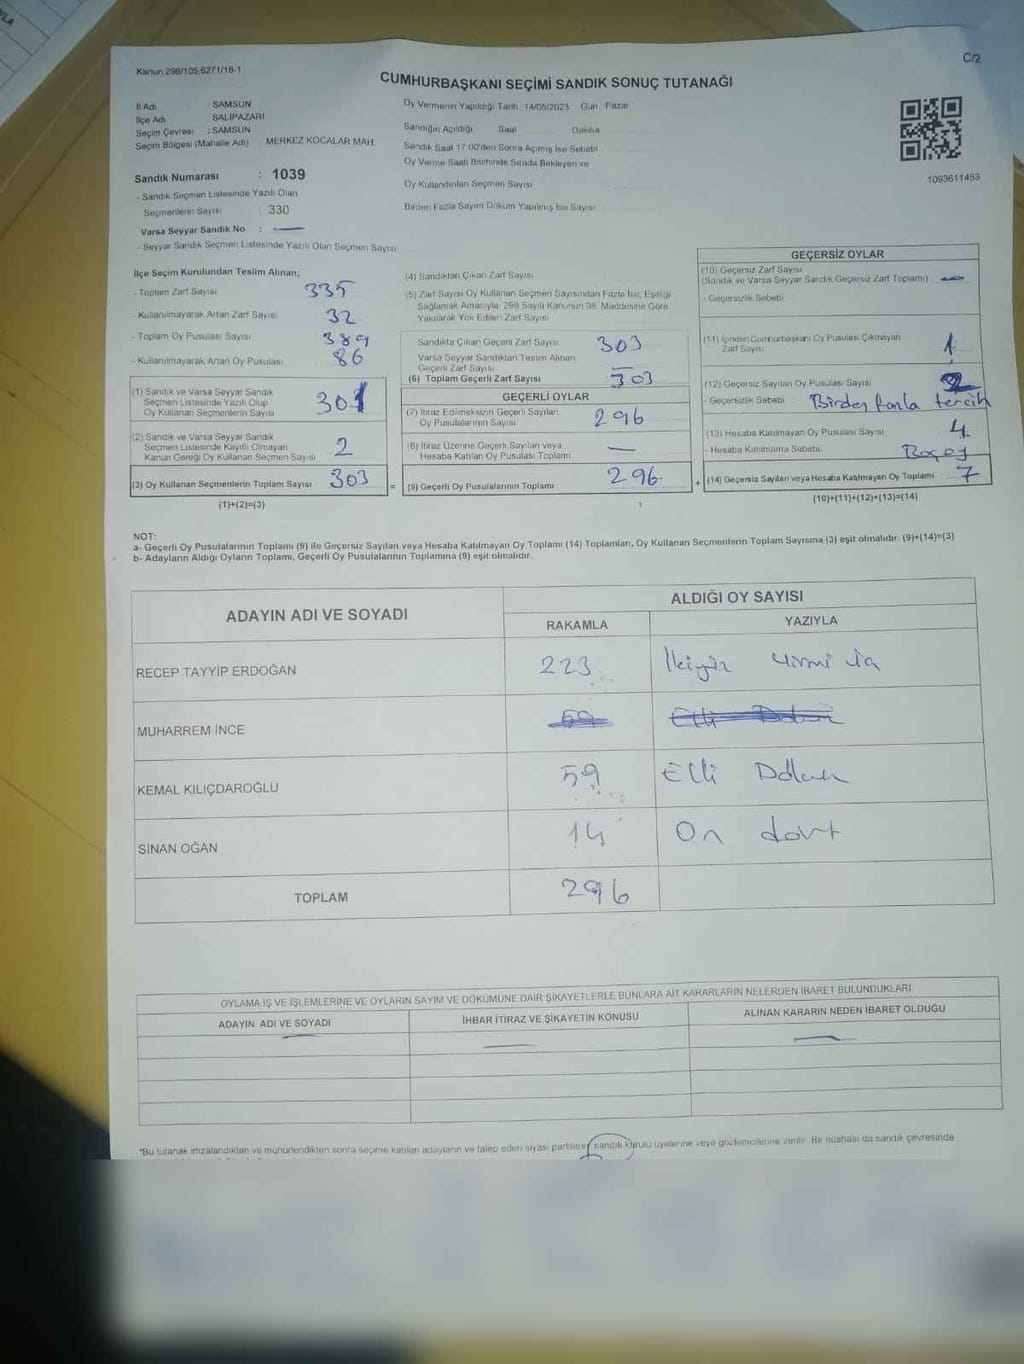 Kanun:298/105,6271/18-1
C/2
CUMHURBAŞKANI SEÇİMİ SANDIK SONUÇ TUTANAĞI
İl Adı SAMSUN
İlçe Adı SALIPAZARI
Seçim Çevresi : SAMSUN
Seçim Bölgesi (Mahalle Adı) MERKEZ KOCALAR MAH.
Sandık Numarası : 1039
- Sandık Seçmen Listesinde Yazılı Olan
Seçmenlerin Sayısı : 330
Varsa Seyyar Sandık No : —
- Seyyar Sandık Seçmen Listesinde Yazılı Olan Seçmen Sayısı
Oy Vermenin Yapıldığı Tarih 14/05/2023 Gün Pazar
Sandığın Açıldığı Saat Dakika
Sandık Saat 17:00'den Sonra Açılmış İse Sebebi
Oy Verme Saati Bitiminde Sırada Bekleyen ve
Oy Kullandırılan Seçmen Sayısı
Birden Fazla Sayım Döküm Yapılmış İse Sayısı
1093611453
İlçe Seçim Kurulundan Teslim Alınan;
- Toplam Zarf Sayısı 335
- Kullanılmayarak Artan Zarf Sayısı 32
- Toplam Oy Pusulası Sayısı 389
- Kullanılmayarak Artan Oy Pusulası 86
(1) Sandık ve Varsa Seyyar Sandık
Seçmen Listesinde Yazılı Olup
Oy Kullanan Seçmenlerin Sayısı 301
(2) Sandık ve Varsa Seyyar Sandık
Seçmen Listesinde Kayıtlı Olmayan
Kanun Gereği Oy Kullanan Seçmen Sayısı 2
(3) Oy Kullanan Seçmenlerin Toplam Sayısı 303
(1)+(2)=(3)
(4) Sandıktan Çıkan Zarf Sayısı
(5) Zarf Sayısı Oy Kullanan Seçmen Sayısından Fazla İse, Eşitliği
Sağlamak Amacıyla, 298 Sayılı Kanunun 98. Maddesine Göre
Yakılarak Yok Edilen Zarf Sayısı
Sandıkta Çıkan Geçerli Zarf Sayısı 303
Varsa Seyyar Sandıktan Teslim Alınan
Geçerli Zarf Sayısı —
(6) Toplam Geçerli Zarf Sayısı 303
GEÇERLİ OYLAR
(7) İtiraz Edilmeksizin Geçerli Sayılan
Oy Pusulalarının Sayısı 296
(8) İtiraz Üzerine Geçerli Sayılan veya
Hesaba Katılan Oy Pusulası Toplamı —
= (9) Geçerli Oy Pusulalarının Toplamı 296
GEÇERSİZ OYLAR
(10) Geçersiz Zarf Sayısı
(Sandık ve Varsa Seyyar Sandık Geçersiz Zarf Toplamı) —
- Geçersizlik Sebebi
(11) İçinden Cumhurbaşkanı Oy Pusulası Çıkmayan
Zarf Sayısı 1
(12) Geçersiz Sayılan Oy Pusulası Sayısı 2
- Geçersizlik Sebebi : Birden fazla tercih
(13) Hesaba Katılmayan Oy Pusulası Sayısı 4
- Hesaba Katılmama Sebebi
+ (14) Geçersiz Sayılan veya Hesaba Katılmayan Oy Toplamı 7
(10)+(11)+(12)+(13)=(14)
NOT:
a- Geçerli Oy Pusulalarının Toplamı (9) ile Geçersiz Sayılan veya Hesaba Katılmayan Oy Toplamı (14) Toplamları, Oy Kullanan Seçmenlerin Toplam Sayısına (3) eşit olmalıdır. (9)+(14)=(3)
b- Adayların Aldığı Oyların Toplamı, Geçerli Oy Pusulalarının Toplamına (9) eşit olmalıdır.
ADAYIN ADI VE SOYADI ALDIĞI OY SAYISI
RAKAMLA YAZIYLA
RECEP TAYYİP ERDOĞAN 223 İkiyüz yirmi üç
MUHARREM İNCE
KEMAL KILIÇDAROĞLU 59 Elli Dokuz
SİNAN OĞAN 14 On dört
TOPLAM 296
OYLAMA İŞ VE İŞLEMLERİNE VE OYLARIN SAYIM VE DÖKÜMÜNE DAİR ŞİKAYETLERLE BUNLARA AİT KARARLARIN NELERDEN İBARET BULUNDUKLARI
ADAYIN ADI VE SOYADI İHBAR İTİRAZ VE ŞİKAYETİN KONUSU ALINAN KARARIN NEDEN İBARET OLDUĞU
— — —
*Bu tutanak imzalandıktan ve mühürlendikten sonra seçime katılan adayların ve talep eden siyasi partilerin sandık kurulu üyelerine veya gözlemcilerine verilir. Bir nüshası da sandık çevresinde